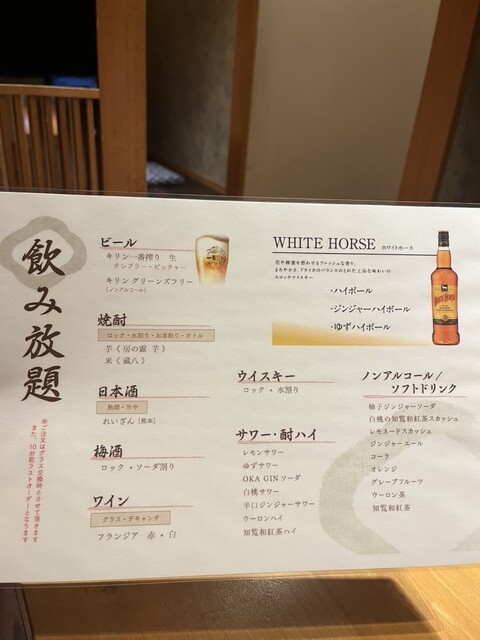 飲み放題
※ご注文はグラス交換時とさせて頂きます
また、10分前ラストオーダーとなります
ビール
キリン一番搾り 生
タンブラー・ピッチャー
キリン グリーンズフリー
(ノンアルコール)
焼酎
ロック・水割り・お湯割り・ボトル
芋《房の露 芋》
米《蔵八》
日本酒
熱燗・冷や
れいざん [熊本]
梅酒
ロック・ソーダ割り
ワイン
グラス・デキャンタ
フランジア 赤・白
WHITE HORSE ホワイトホース
花や蜂蜜を想わせるフレッシュな香り、
まろやかさ、ドライさのバランスのとれた上品な味わいの
スコッチウイスキー
・ハイボール
・ジンジャーハイボール
・ゆずハイボール
WHITE HORSE
ウイスキー
ロック・水割り
サワー・酎ハイ
レモンサワー
ゆずサワー
OKA GINソーダ
白桃サワー
辛口ジンジャーサワー
ウーロンハイ
知覧和紅茶ハイ
ノンアルコール/
ソフトドリンク
柚子ジンジャーソーダ
白桃の知覧和紅茶スカッシュ
レモネードスカッシュ
ジンジャーエール
コーラ
オレンジ
グレープフルーツ
ウーロン茶
知覧和紅茶